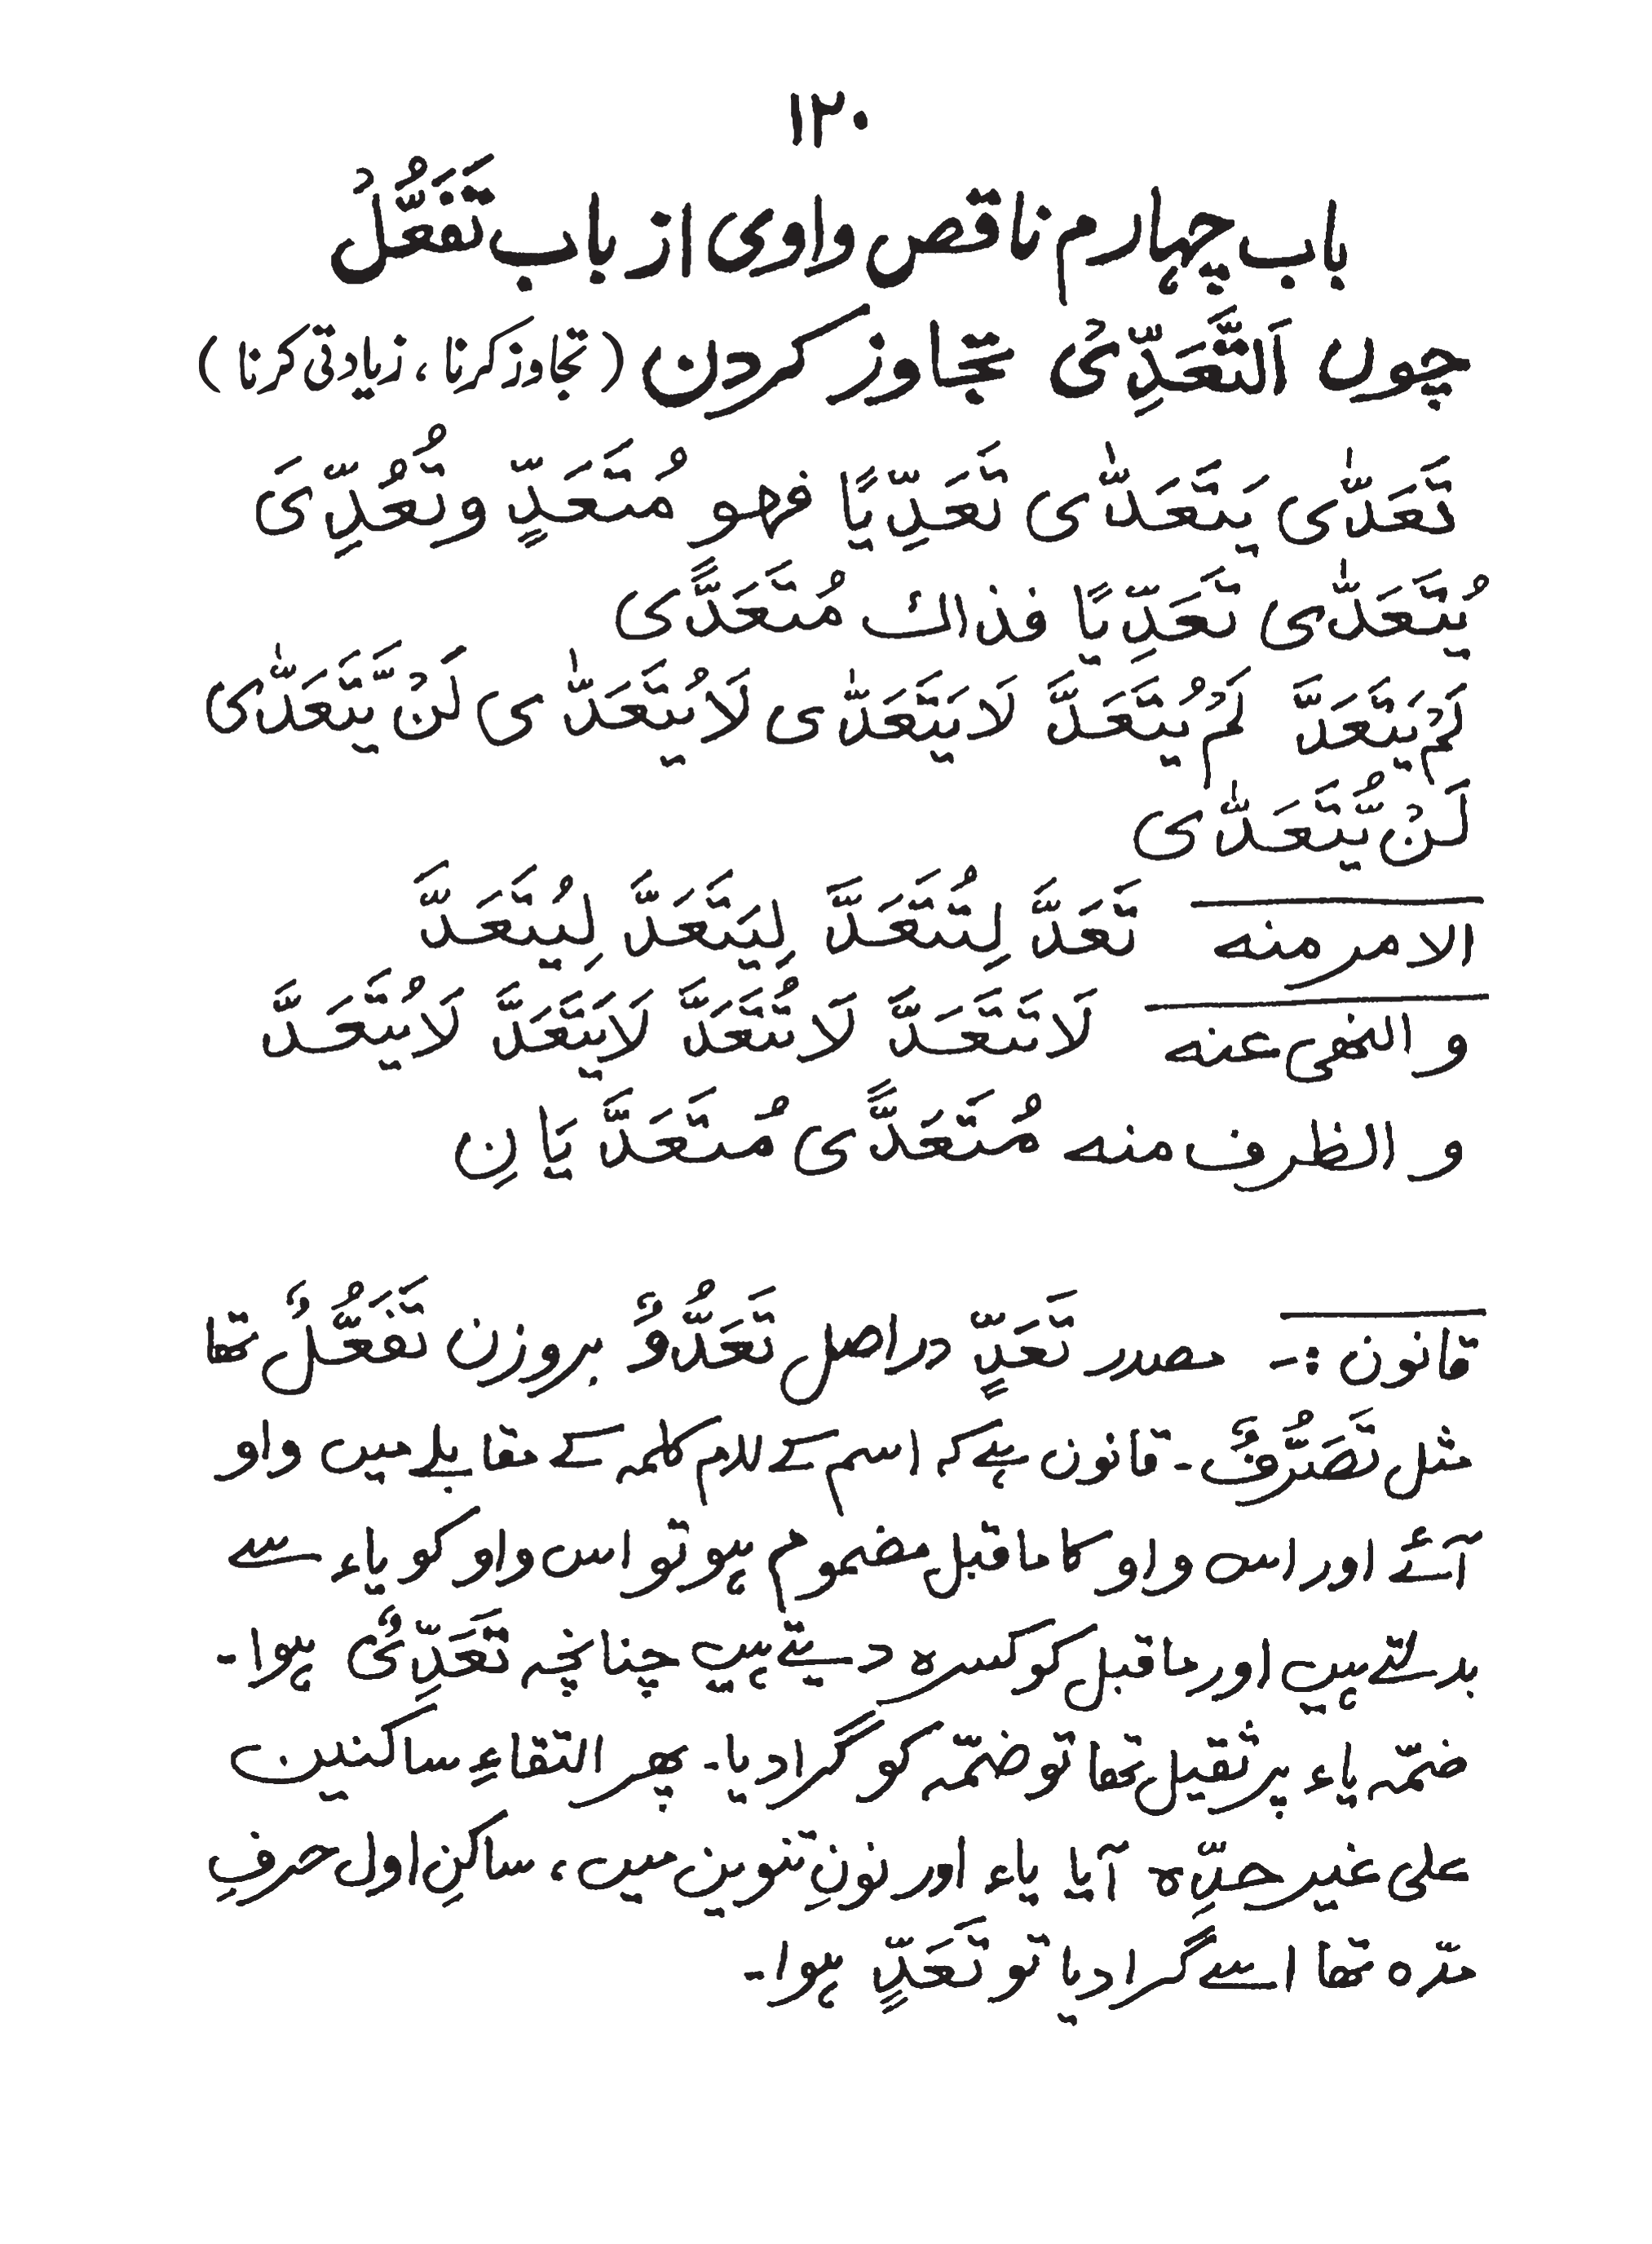 ۱۲۰
باب چہارم ناقص واوی از باب تَفَعُّلْ
چوں اَلتَّعَدِّیْ تجاوز کردن (تجاوز کرنا ، زیادتی کرنا)
تَعَدّٰى يَتَعَدّٰى تَعَدِّيًا فهو مُتَعَدٍّ وتُعُدِّىَ
يُتَعَدّٰى تَعَدِّيًا فذاك مُتَعَدًّى
لَمْ يَتَعَدَّ لَمْ يُتَعَدَّ لَا يَتَعَدّٰى لَا يُتَعَدّٰى لَنْ يَّتَعَدّٰى
لَنْ يُّتَعَدّٰى
الامر منه تَعَدَّ لِتُتَعَدَّ لِيَتَعَدَّ لِيُتَعَدَّ
و النهى عنه لَا تَتَعَدَّ لَا تُتَعَدَّ لَا يَتَعَدَّ لَا يُتَعَدَّ
و الظرف منه مُتَعَدًّى مُتَعَدَّيَانِ
قانون :- مصدر تَعَدٍّ دراصل تَعَدُّوٌ بروزن تَفَعُّلٌ تھا
مثل تَصَرُّفٌ ۔ قانون ہے کہ اسم کے لام کلمہ کے مقابلے میں واو
آئے اور اس واو کا ما قبل مضموم ہو تو اس واو کو یاء سے
بدلتے ہیں اور ما قبل کو کسرہ دیتے ہیں چنانچہ تَعَدِّیٌ ہوا۔
ضمّہ یاء پر ثقیل تھا تو ضمّہ کو گرا دیا۔ پھر التقاءِ ساکنین
علی غیر حدِّہ آیا یاء اور نونِ تنوین میں ، ساکنِ اول حرفِ
مدّہ تھا اسے گرا دیا تو تَعَدٍّ ہوا۔